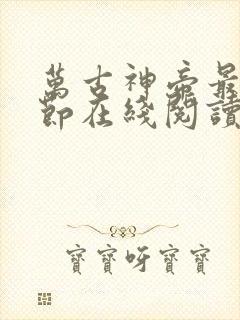 萬古神帝最
節在綫閱讀
寶寶呀寶寶